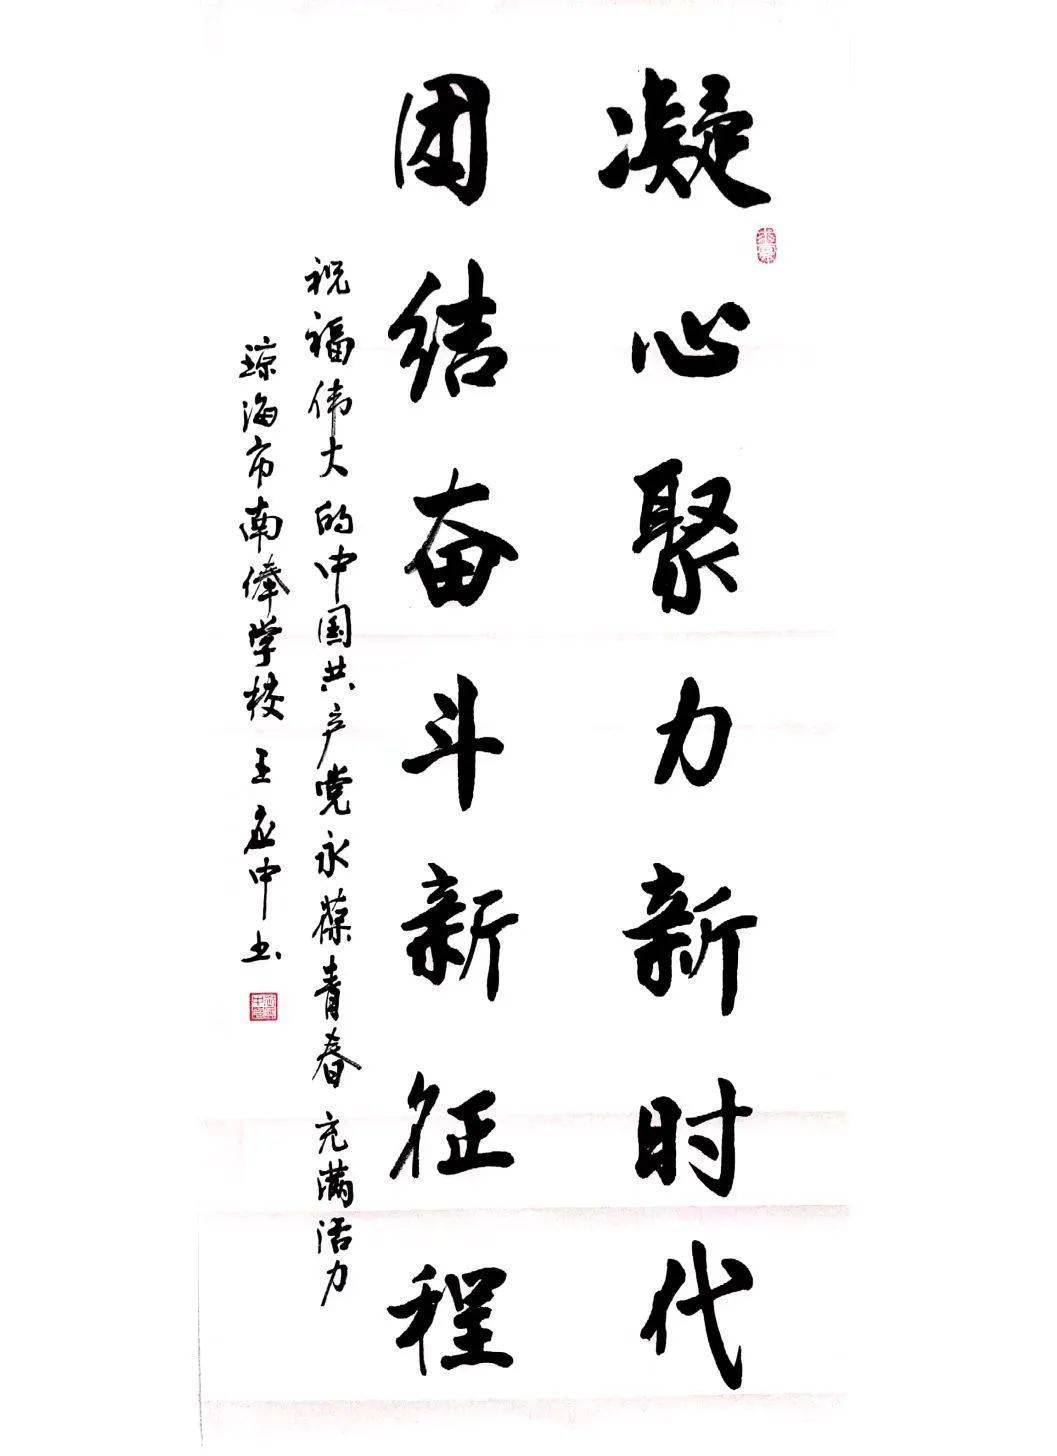 凝心聚力新时代
团结奋斗新征程
祝福伟大的中国共产党永葆青春充满活力
琼海市南俸学校王应中书